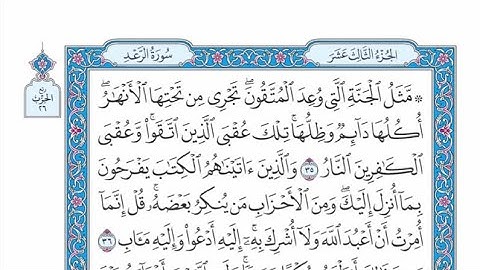 الجُزْءُ الثَّالِثَ عَشَرَ
سُورَةُ الرَّعْدِ
ربع
الحزب
٢٦
۞ مَّثَلُ ٱلْجَنَّةِ ٱلَّتِى وُعِدَ ٱلْمُتَّقُونَۖ تَجْرِى مِن تَحْتِهَا ٱلْأَنْهَٰرُۖ
أُكُلُهَا دَآئِمٌ وَظِلُّهَاۚ تِلْكَ عُقْبَى ٱلَّذِينَ ٱتَّقَوا۟ۖ وَّعُقْبَى
ٱلْكَٰفِرِينَ ٱلنَّارُ ٣٥ وَٱلَّذِينَ ءَاتَيْنَٰهُمُ ٱلْكِتَٰبَ يَفْرَحُونَ
بِمَآ أُنزِلَ إِلَيْكَۖ وَمِنَ ٱلْأَحْزَابِ مَن يُنكِرُ بَعْضَهُۥۚ قُلْ إِنَّمَآ
أُمِرْتُ أَنْ أَعْبُدَ ٱللَّهَ وَلَآ أُشْرِكَ بِهِۦٓۚ إِلَيْهِ أَدْعُوا۟ وَإِلَيْهِ مَـَٔابِ ٣٦